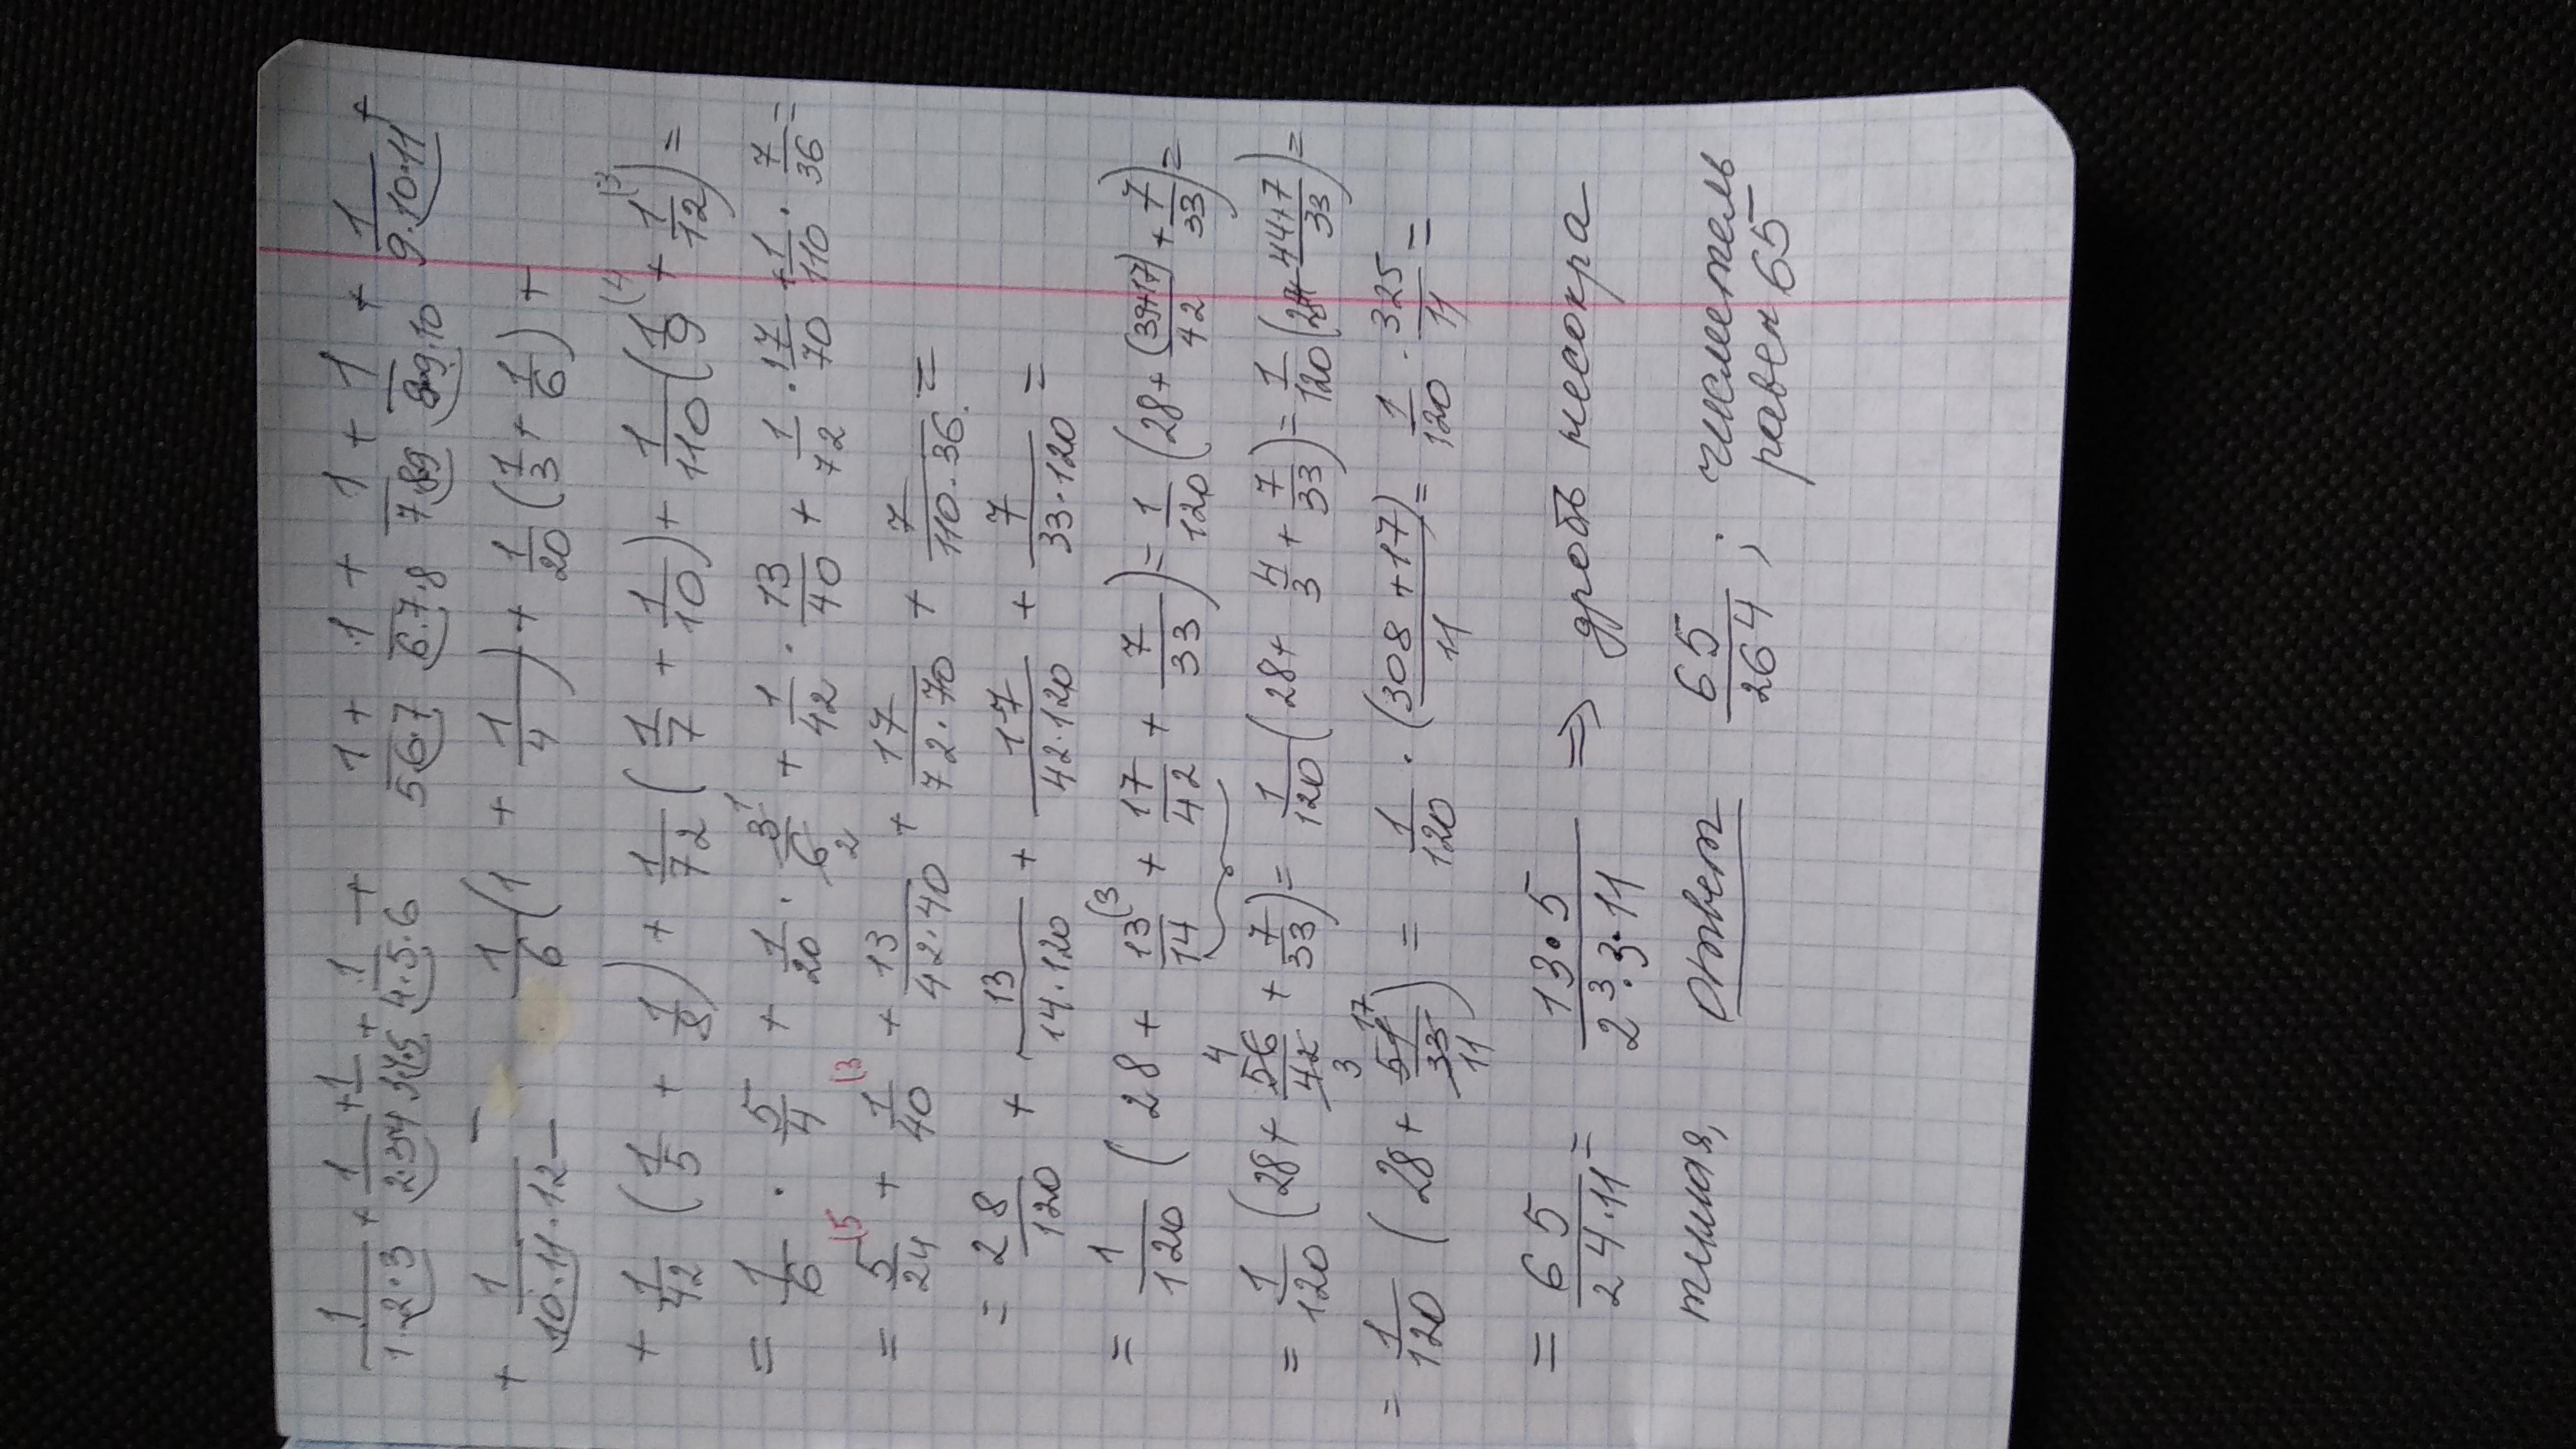 1/(1·2·3) + 1/(2·3·4) + 1/(3·4·5) + 1/(4·5·6) + 1/(5·6·7) + 1/(6·7·8) + 1/(7·8·9) + 1/(8·9·10) + 1/(9·10·11) +
+ 1/(10·11·12) = 1/6 (1 + 1/4) + 1/20 (1/3 + 1/6) +
+ 1/42 (1/5 + 1/8) + 1/72 (1/7 + 1/10) + 1/110 (1/9 (4 + 1/12 (3) =
= 1/6 · 5/4 + 1/20 · 3/6 1/2 + 1/42 · 13/40 + 1/72 · 17/70 + 1/110 · 7/36 =
= 5/24 (5 + 1/40 (3 + 13/(42·40) + 17/(72·70) + 7/(110·36) =
= 28/120 + 13/(14·120) + 17/(42·120) + 7/(33·120) =
= 1/120 (28 + 13/14 (3 + 17/42 + 7/33) = 1/120 (28 + (39+17)/42 + 7/33) =
= 1/120 (28 + 56/42 4/3 + 7/33) = 1/120 (28 + 4/3 + 7/33) = 1/120 (28 + 44+7/33) =
= 1/120 (28 + 51/33 17/11) = 1/120 · (308 + 17)/11 = 1/120 · 325/11 =
= 65/(24·11) = 13·5/(2³·3·11) ⇒ дробь несокра
тимая, Ответ 65/264 ; числитель
равен 65